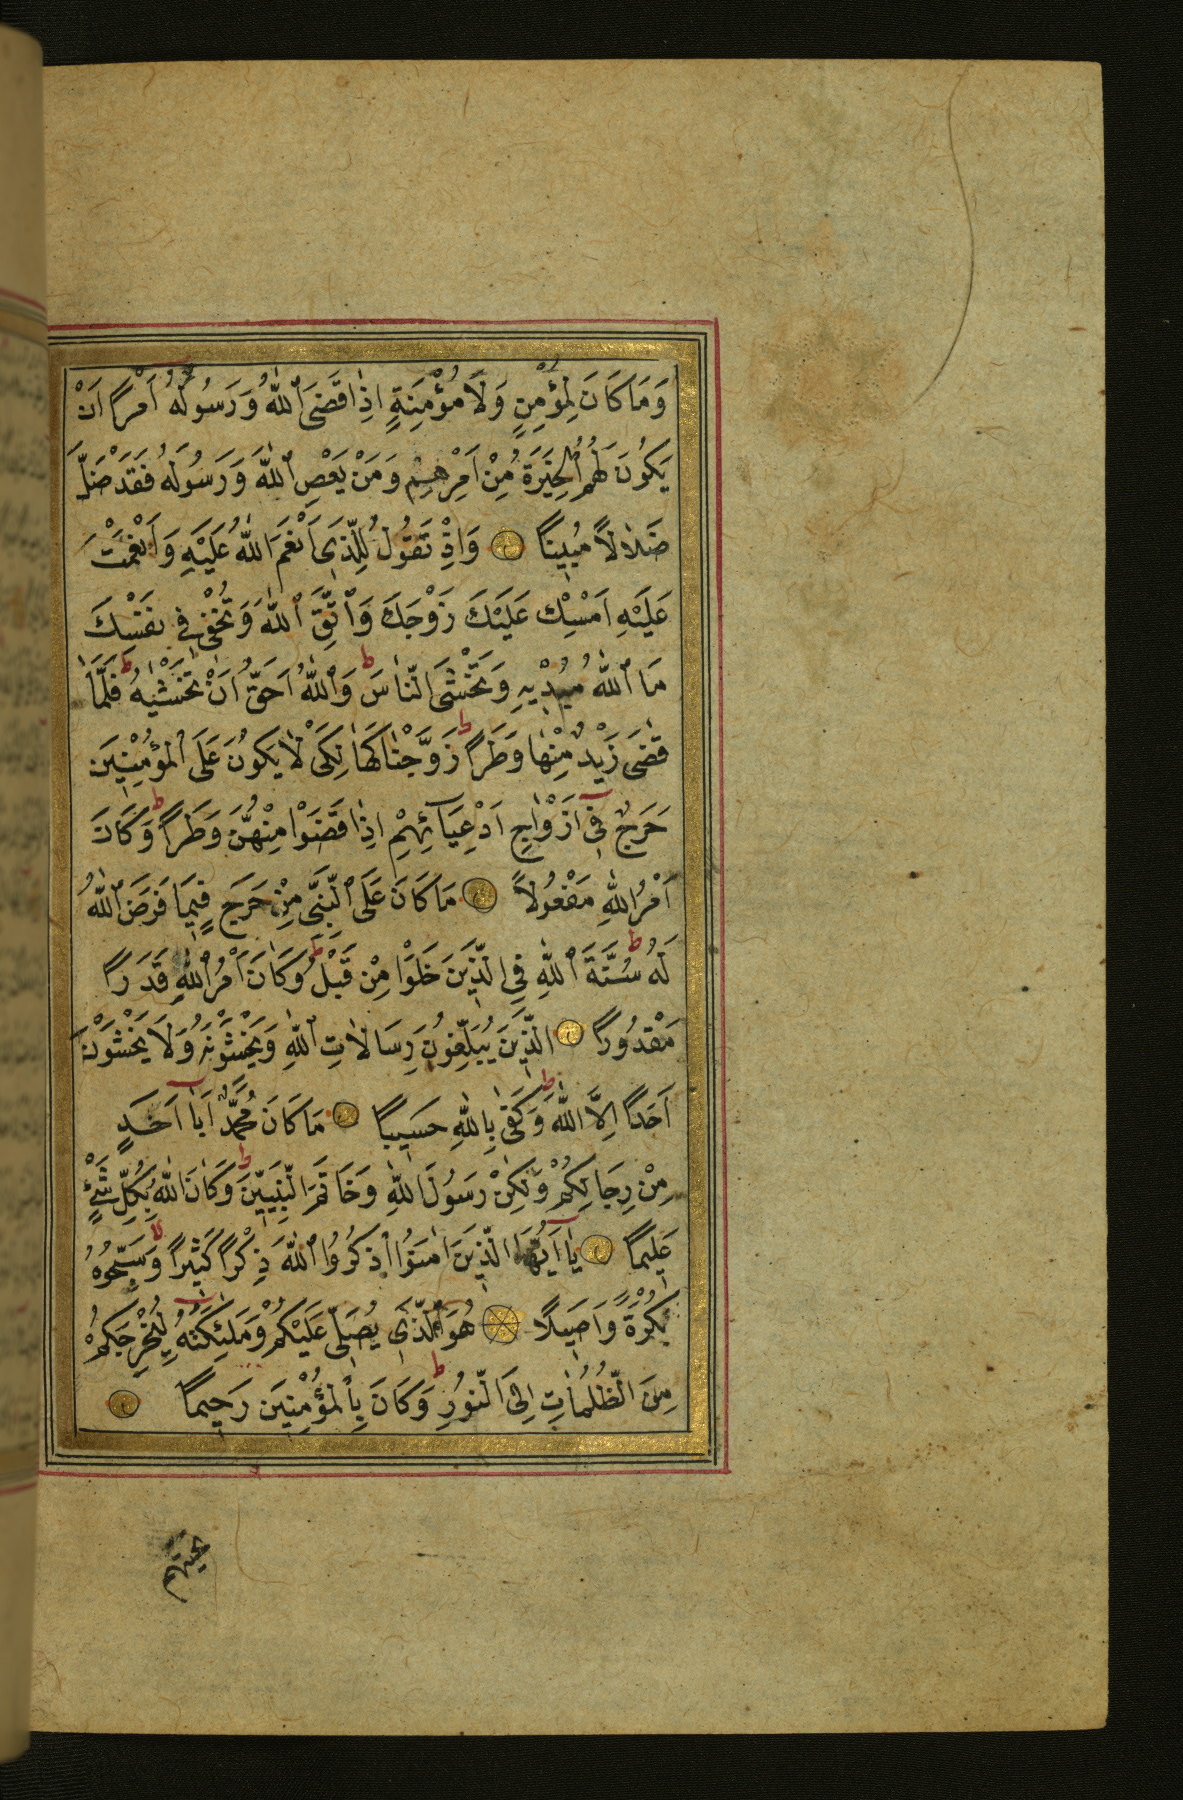 وَمَا كَانَ لِمُؤْمِنٍ وَلَا مُؤْمِنَةٍ اِذَا قَضَى ٱللّٰهُ وَرَسُولُهُ اَمْرًا اَنْ
يَكُونَ لَهُمُ ٱلْخِيَرَةُ مِنْ اَمْرِهِمْ وَمَنْ يَعْصِ ٱللّٰهَ وَرَسُولَهُ فَقَدْ ضَلَّ
ضَلَالًا مُبِينًا وَاِذْ تَقُولُ لِلَّذِى اَنْعَمَ اللّٰهُ عَلَيْهِ وَاَنْعَمْتَ
عَلَيْهِ اَمْسِكْ عَلَيْكَ زَوْجَكَ وَٱتَّقِ ٱللّٰهَ وَتُخْفِى فِى نَفْسِكَ
مَا ٱللّٰهُ مُبْدِيهِ وَتَخْشَى النَّاسَ ط وَٱللّٰهُ اَحَقُّ اَنْ تَخْشٰيهُ ط فَلَمَّا
قَضٰى زَيْدٌ مِنْهَا وَطَرًا ط زَوَّجْنَاكَهَا لِكَىْ لَا يَكُونَ عَلَى ٱلْمُؤْمِنِينَ
حَرَجٌ فِى اَزْوَاجِ اَدْعِيَآئِهِمْ اِذَا قَضَوْا مِنْهُنَّ وَطَرًا ط وَكَانَ
اَمْرُ اللّٰهِ مَفْعُولًا مَا كَانَ عَلَى ٱلنَّبِىِّ مِنْ حَرَجٍ فِيمَا فَرَضَ ٱللّٰهُ
لَهُ ط سُنَّةَ ٱللّٰهِ فِى الَّذِينَ خَلَوْا مِنْ قَبْلُ ط وَكَانَ اَمْرُ ٱللّٰهِ قَدَرًا
مَقْدُورًا الَّذِينَ يُبَلِّغُونَ رِسَالَاتِ ٱللّٰهِ وَيَخْشَوْنَهُ وَلَا يَخْشَوْنَ
اَحَدًا اِلَّا اللّٰهَ ط وَكَفٰى بِاللّٰهِ حَسِيبًا مَا كَانَ مُحَمَّدٌ اَبَا اَحَدٍ
مِنْ رِجَالِكُمْ وَلٰكِنْ رَسُولَ اللّٰهِ وَخَاتَمَ النَّبِيِّينَ ط وَكَانَ اللّٰهُ بِكُلِّ شَىْءٍ
عَلِيمًا يَا اَيُّهَا الَّذِينَ اٰمَنُوا اذْكُرُوا ٱللّٰهَ ذِكْرًا كَثِيرًا لا وَسَبِّحُوهُ
بُكْرَةً وَاَصِيلًا هُوَ الَّذِى يُصَلِّى عَلَيْكُمْ وَمَلٰئِكَتُهُ لِيُخْرِجَكُمْ
مِنَ الظُّلُمَاتِ اِلَى النُّورِ ط وَكَانَ بِالْمُؤْمِنِينَ رَحِيمًا
تحيتهم